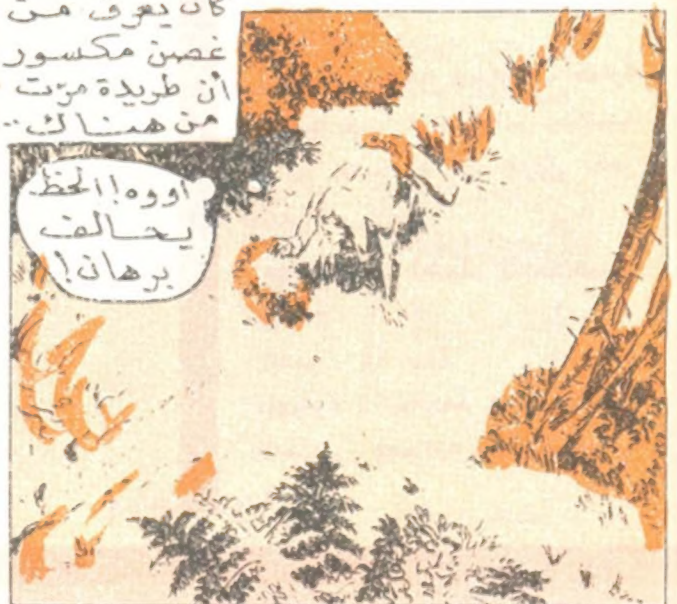 كان يعرف من
غصن مكسور
أن طريدة مرّت
من هناك..
اووه! الحظ
يحالف
برهان!